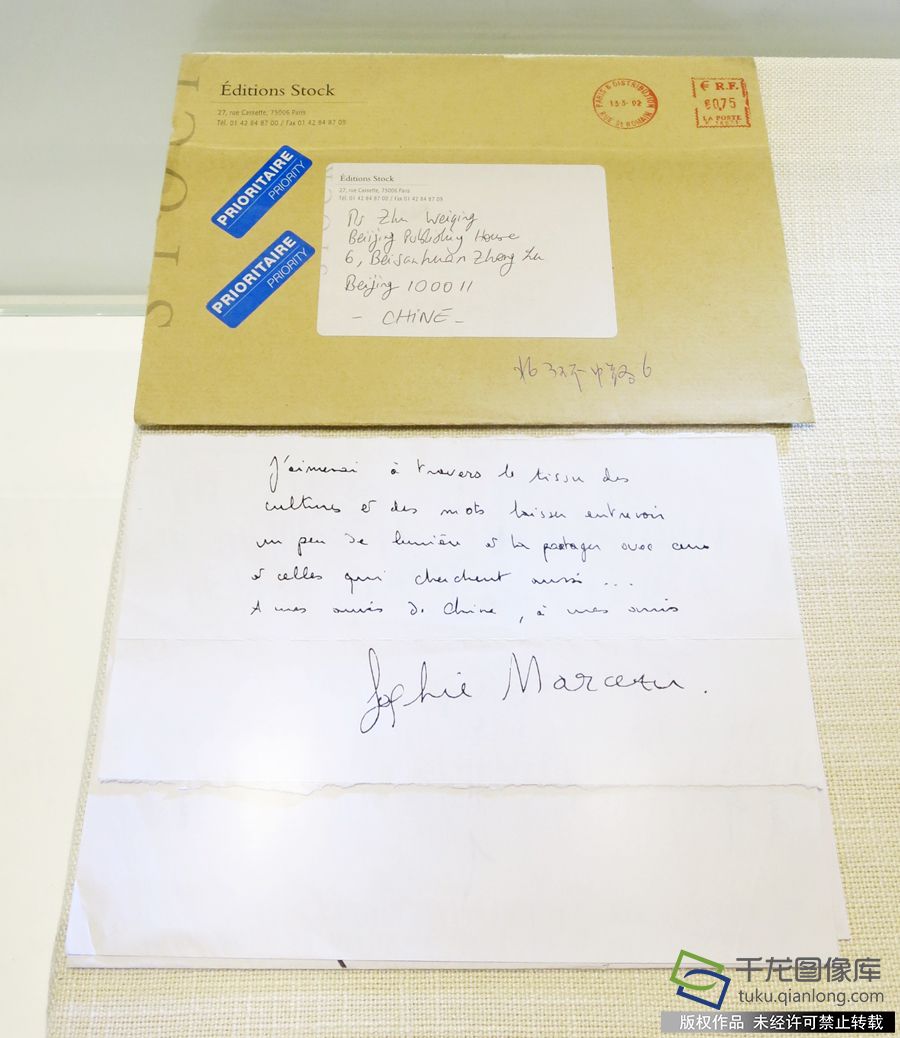 STOCK
Éditions Stock
27, rue Cassette, 75006 Paris
Tél. 01 42 84 87 00 / Fax 01 42 84 87 09
PARIS 6 DISTRIBUTION
13-5-02
RUE ST ROMAIN
€ R.F.
€0,75
LA POSTE
PRIORITAIRE
PRIORITY
PRIORITAIRE
PRIORITY
Éditions Stock
27, rue Cassette, 75006 Paris
Tél. 01 42 84 87 00 / Fax 01 42 84 87 09
Zhu Weiqing
Beijing Publishing House
6, Beisanhuan Zhong Lu
Beijing 100011
- CHINE -
北三环中路6
J'aimerai à travers le tissu des
cultures et des mots laisser entrevoir
un peu de lumière et la partager avec ceux
et celles qui cherchent aussi...
A mes amis de Chine, à mes amis
Sophie Marceau.
千龙图像库
tuku.qianlong.com
版权作品 未经许可禁止转载